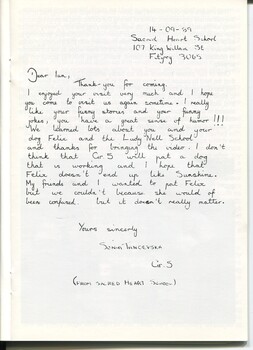 14-09-89
Sacred Heart School
107 King William St
Fitzroy 3065
Dear Ian,
Thank-you for coming.
I enjoyed your visit very much and I hope
you come to visit us again sometime. I really
like your funny stories and your funny
jokes, you have a great sense of humor!!!
We learned lots about you and your
dog Felix and the Lady Nell School
and thanks for bringing the video. I don't
think that Gr.5 will pat a dog
that is working and I hope that
Felix doesn't end up like Sunshine.
My friends and I wanted to pat Felix
but we couldn't because she would of
been confused. but it doesn't really matter.
Yours sincerly
Gr.5
(FROM SACRED HEART SCHOOL)